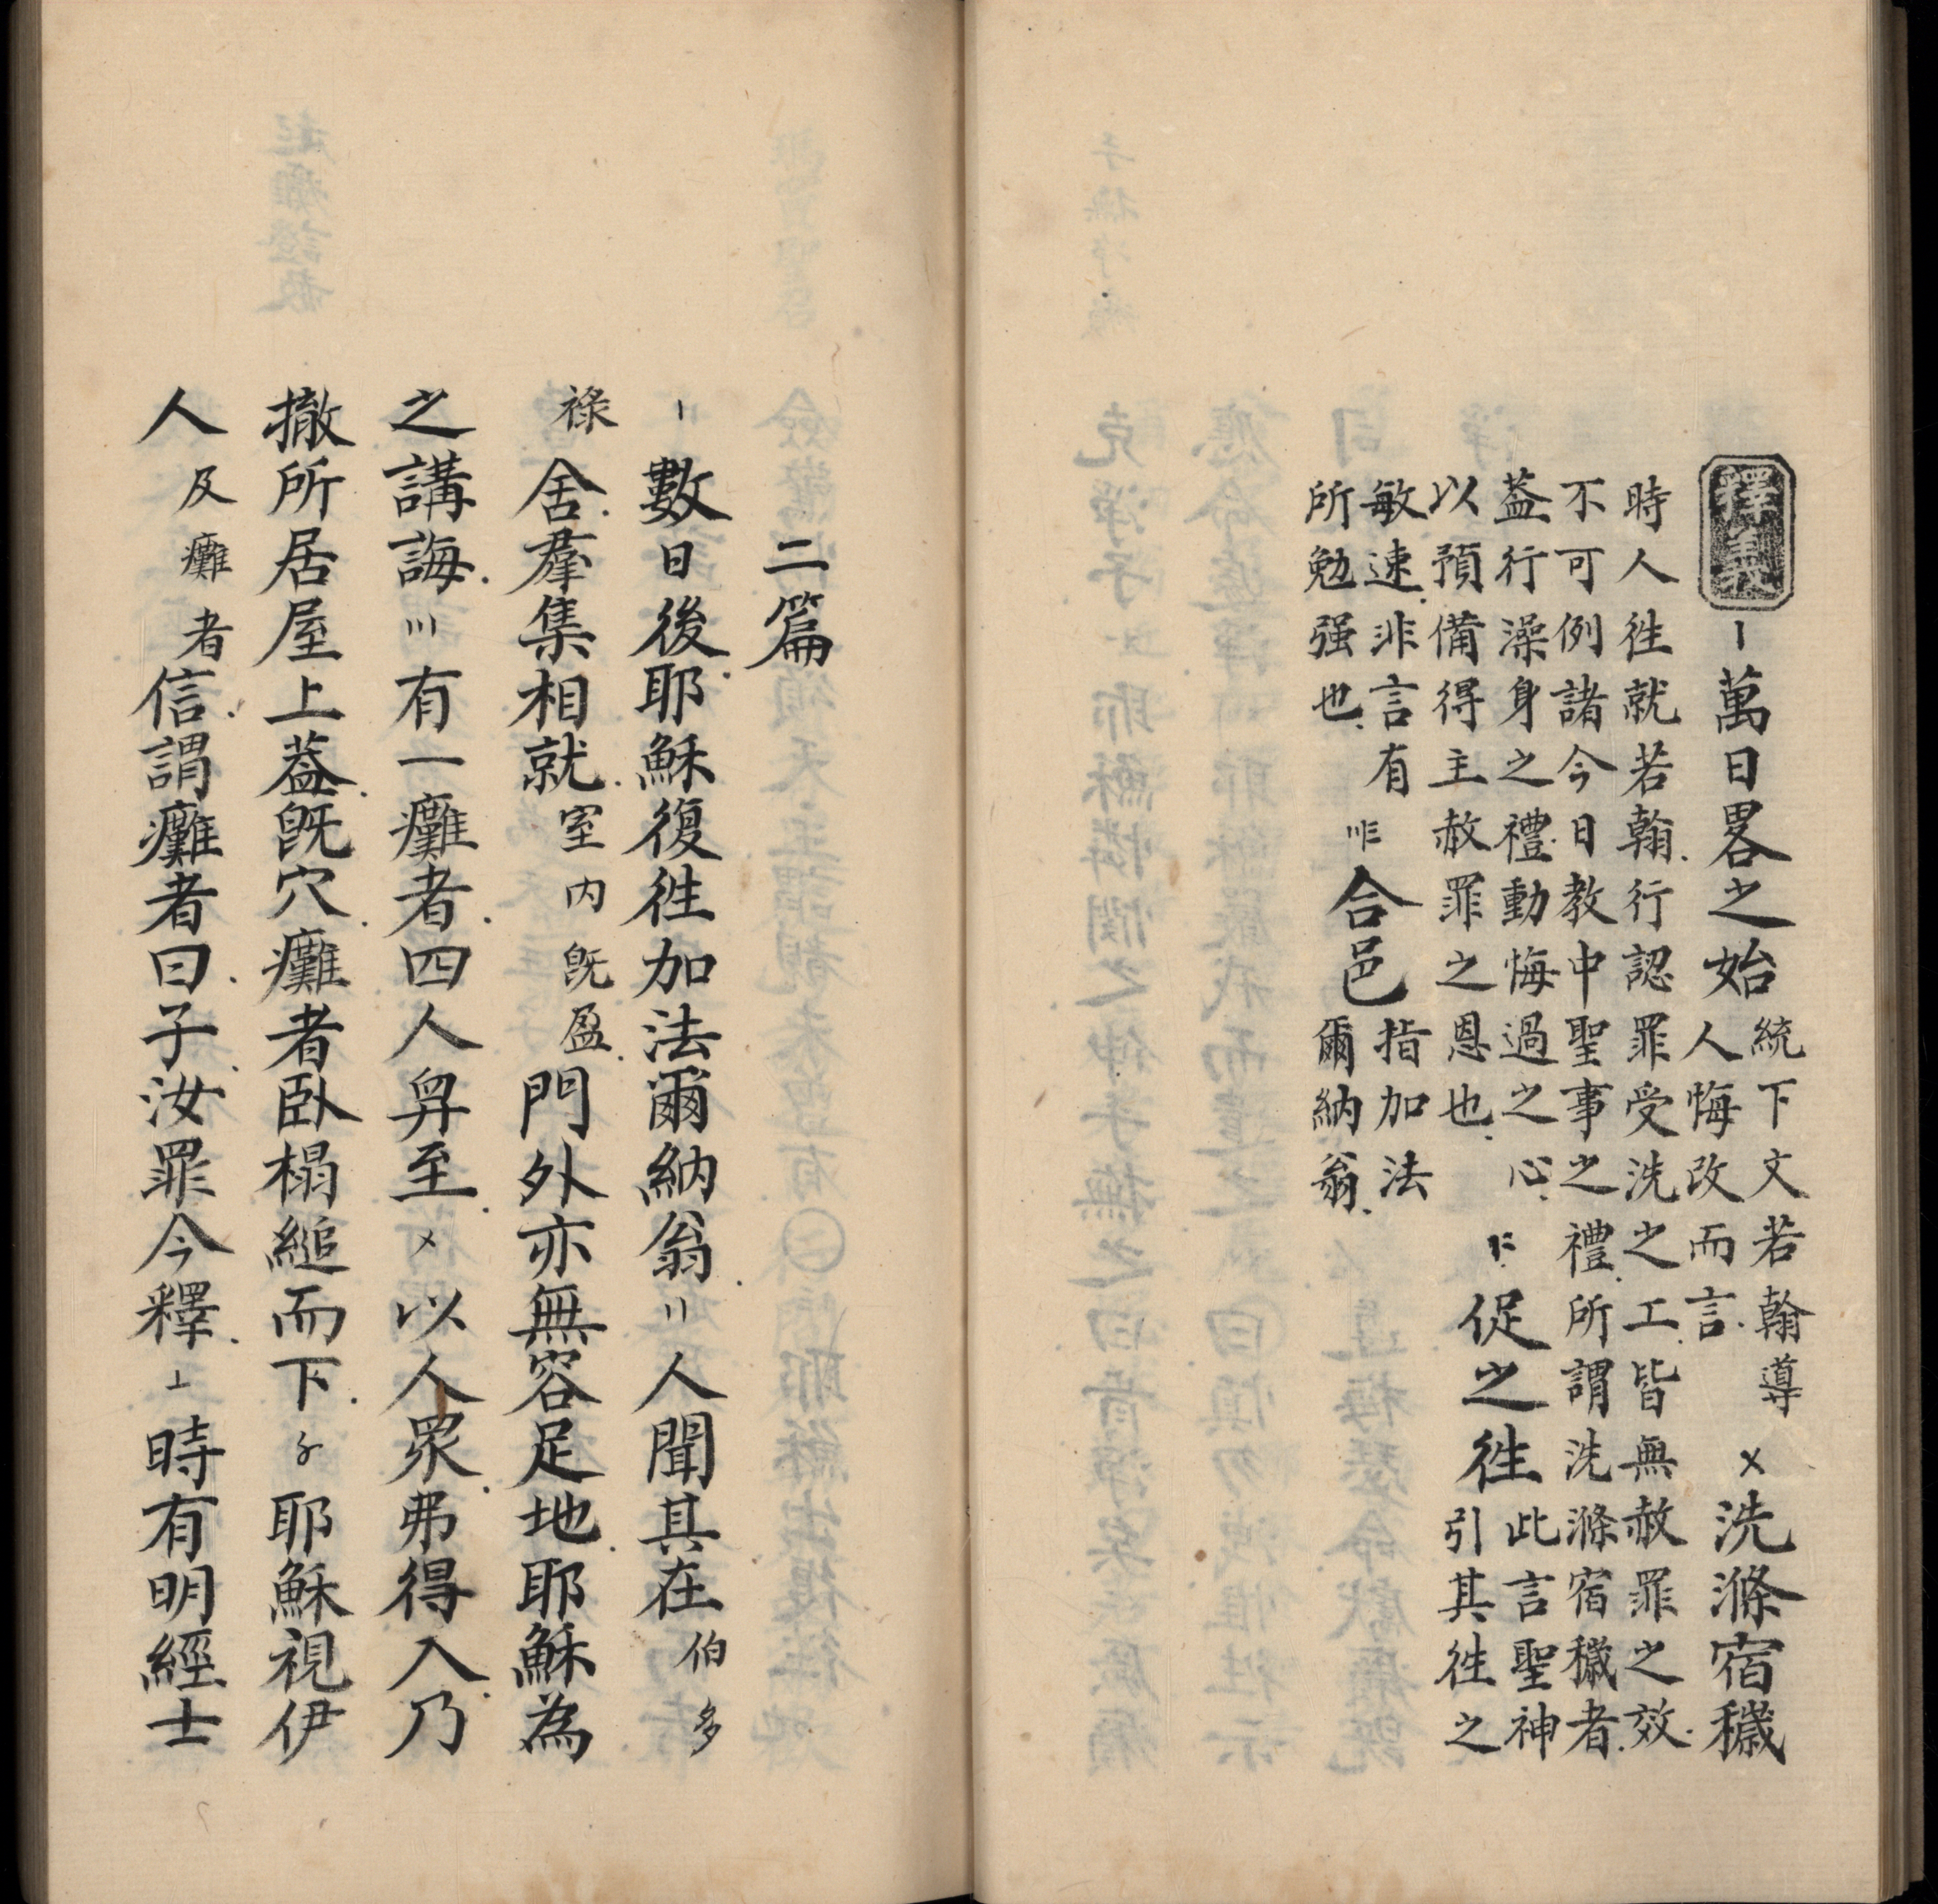 釋義〡萬日畧之始統下文若翰導人悔改而言.〤洗滌宿穢
時人徃就若翰.行認罪受洗之工.皆無赦罪之效.
不可例諸今日教中聖事之禮.所謂洗滌宿穢者.
葢行澡身之禮.動悔過之心.
以預備得主赦罪之恩也.
〡二促之徃此言聖神
引其徃之
敏速.非言有
所勉强也.
〣三合邑指加法
爾納翁.
二篇
〡數日後耶穌.復徃加法爾納翁.〢人聞其在伯多
祿舍.羣集相就.室内旣盈.門外亦無容足地.耶穌為
之講誨.〣有一癱者.四人舁至.〤以人眾.弗得入.乃
撤所居屋上葢.旣穴.癱者臥榻縋而下.〥耶穌視伊
人及癱者信.謂癱者曰.子.汝罪今釋.〦時有明經士